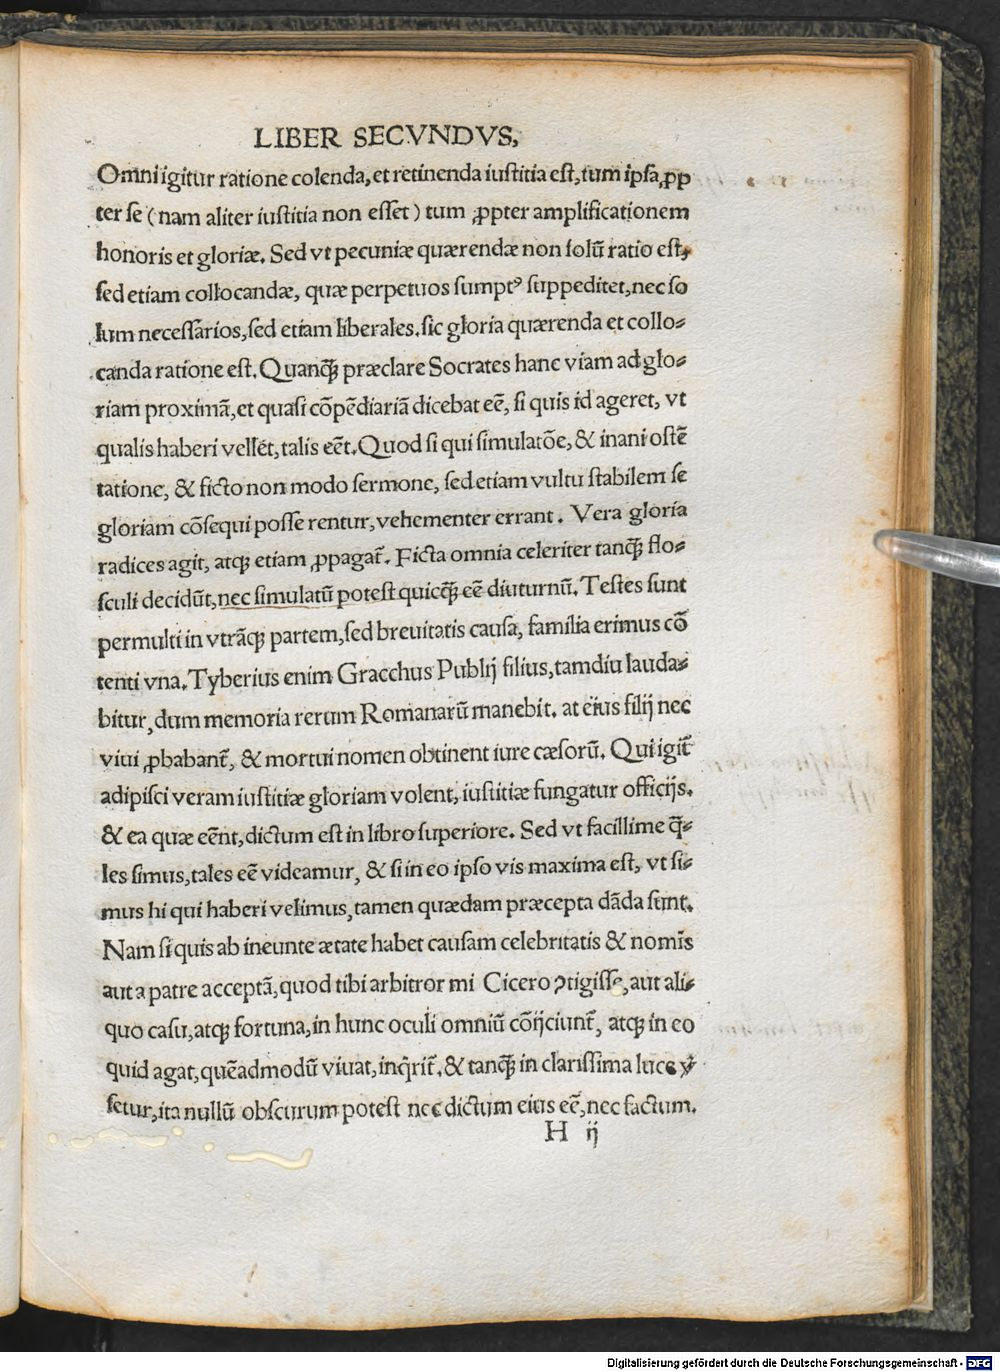 LIBER SECVNDVS,
Omni igitur ratione colenda, et retinenda iuſtitia eſt, tum ipſa ꝓp
ter ſe (nam aliter iuſtitia non eſſet) tum ꝓpter amplificationem
honoris et gloriæ. Sed vt pecuniæ quærendæ non ſolū ratio eſt,
ſed etiam collocandæ, quæ perpetuos ſumptꝰ ſuppeditet, nec ſo
lum neceſſarios, ſed etiam liberales. ſic gloria quærenda et collo⸗
canda ratione eſt. Quanꝗ̃ præclare Socrates hanc viam ad glo⸗
riam proximā, et quaſi cōpēdiariā dicebat eē, ſi quis id ageret, vt
qualis haberi vellet, talis eēt. Quod ſi qui ſimulatōe, & inani oſtē
tatione, & ficto non modo ſermone, ſed etiam vultu ſtabilem ſe
gloriam cōſequi poſſe rentur, vehementer errant. Vera gloria
radices agit, atqꝫ etiam ꝓpagat̄. Ficta omnia celeriter tanꝗ̃ flo⸗
ſculi decidūt, nec ſimulatū poteſt quicꝗ̃ eē diuturnū. Teſtes ſunt
permulti in vtrāqꝫ partem, ſed breuitatis cauſa, familia erimus cō
tenti vna. Tyberius enim Gracchus Publij filius, tamdiu lauda⸗
bitur, dum memoria rerum Romanarū manebit. at eius filij nec
viui ꝓbabant̄, & mortui nomen obtinent iure cæſorū. Qui igit̄
adipiſci veram iuſtitiæ gloriam volent, iuſtitiæ fungatur officijs.
& ea quæ eēnt, dictum eſt in libro ſuperiore. Sed vt facillime q̄⸗
les ſimus, tales eē videamur, & ſi in eo ipſo vis maxima eſt, vt ſi⸗
mus hi qui haberi velimus, tamen quædam præcepta dāda ſunt.
Nam ſi quis ab ineunte ætate habet cauſam celebritatis & nomīs
aut a patre acceptā, quod tibi arbitror mi Cicero ꝯtigiſſe, aut ali⸗
quo caſu, atqꝫ fortuna, in hunc oculi omniū cōijciunt̄, atqꝫ in eo
quid agat, quēadmodū viuat, inq̄rit̄. & tanꝗ̃ in clariſſima luce ỽ
ſetur, ita nullū obſcurum poteſt nec dictum eius eē, nec factum.
H ij
Digitalisierung gefördert durch die Deutsche Forschungsgemeinschaft - DFG